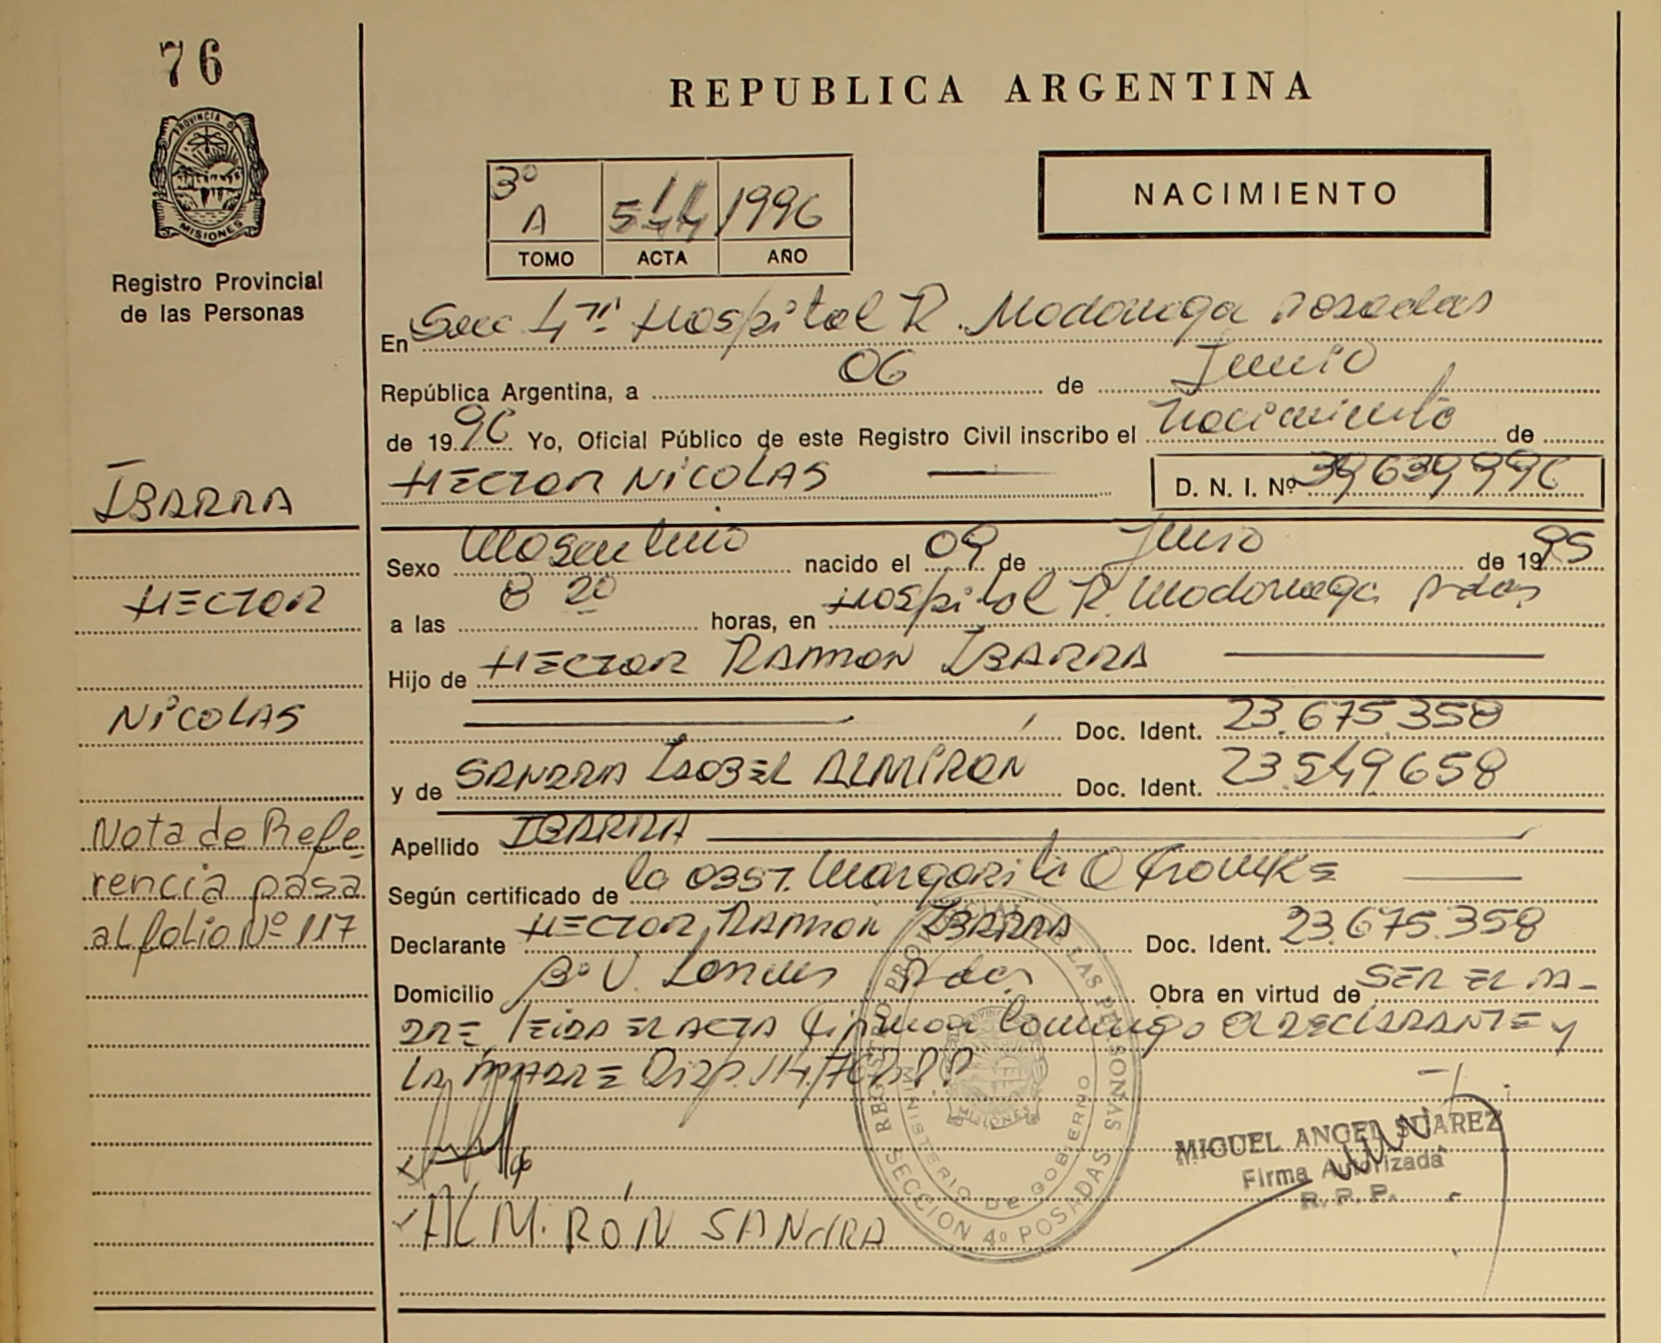 76
REPUBLICA ARGENTINA
PROVINCIA D
MISIONES
Registro Provincial
de las Personas
NACIMIENTO
3º A 544 1996
TOMO ACTA AÑO
En Secc 4ta Hospital R. Madariaga Posadas
República Argentina, a 06 de Junio
de 1996 Yo, Oficial Público de este Registro Civil inscribo el Nacimiento de
HECTOR NICOLAS D. N. I. Nº 39639996
IBARRA
HECTOR
NICOLAS
Nota de Refe
rencia pasa
al folio Nº 117
Sexo Masculino nacido el 09 de Junio de 1995
a las 8 20 horas, en Hospital R. Madariaga Pdas
Hijo de HECTOR RAMON IBARRA
Doc. Ident. 23.675.358
y de SANDRA ISABEL ALMIRÓN Doc. Ident. 23549658
Apellido IBARRA
Según certificado de la OBST. Margarita O
Declarante HECTOR RAMON IBARRA Doc. Ident. 23.675.358
Domicilio Bº V. Pdas Obra en virtud de SER EL PA-
DRE leida EL ACTA firman Conmigo El DECLARANTE y
LA MADRE Disp. 114/
REGISTRO PROVINCIAL DE LAS PERSONAS
MINISTERIO DE GOBIERNO
SECCION 4º POSADAS
MISIONES
MIGUEL ANGEL SUAREZ
Firma Autorizada
R. P. P.
ALMIRÓN SANDRA